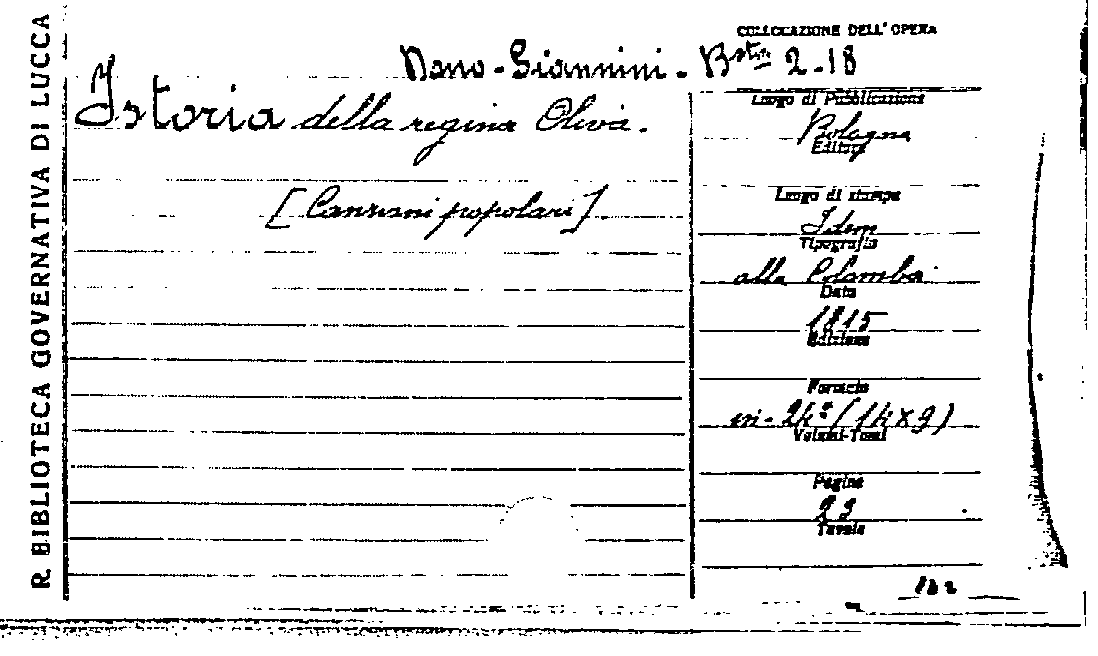 R. BIBLIOTECA GOVERNATIVA DI LUCCA
COLLOCAZIONE DELL' OPERA
Dono - Giannini - Bsta 2-18
Istoria della regina Oliva.
[Canzoni popolari].
Luogo di Pubblicazione
Bologna
Editore
Luogo di stampa
Idem
Tipografia
alla Colomba
Data
1815
Edizione
Formato
in-24º (14x9)
Volumi-Tomi
Pagine
23
Tavole